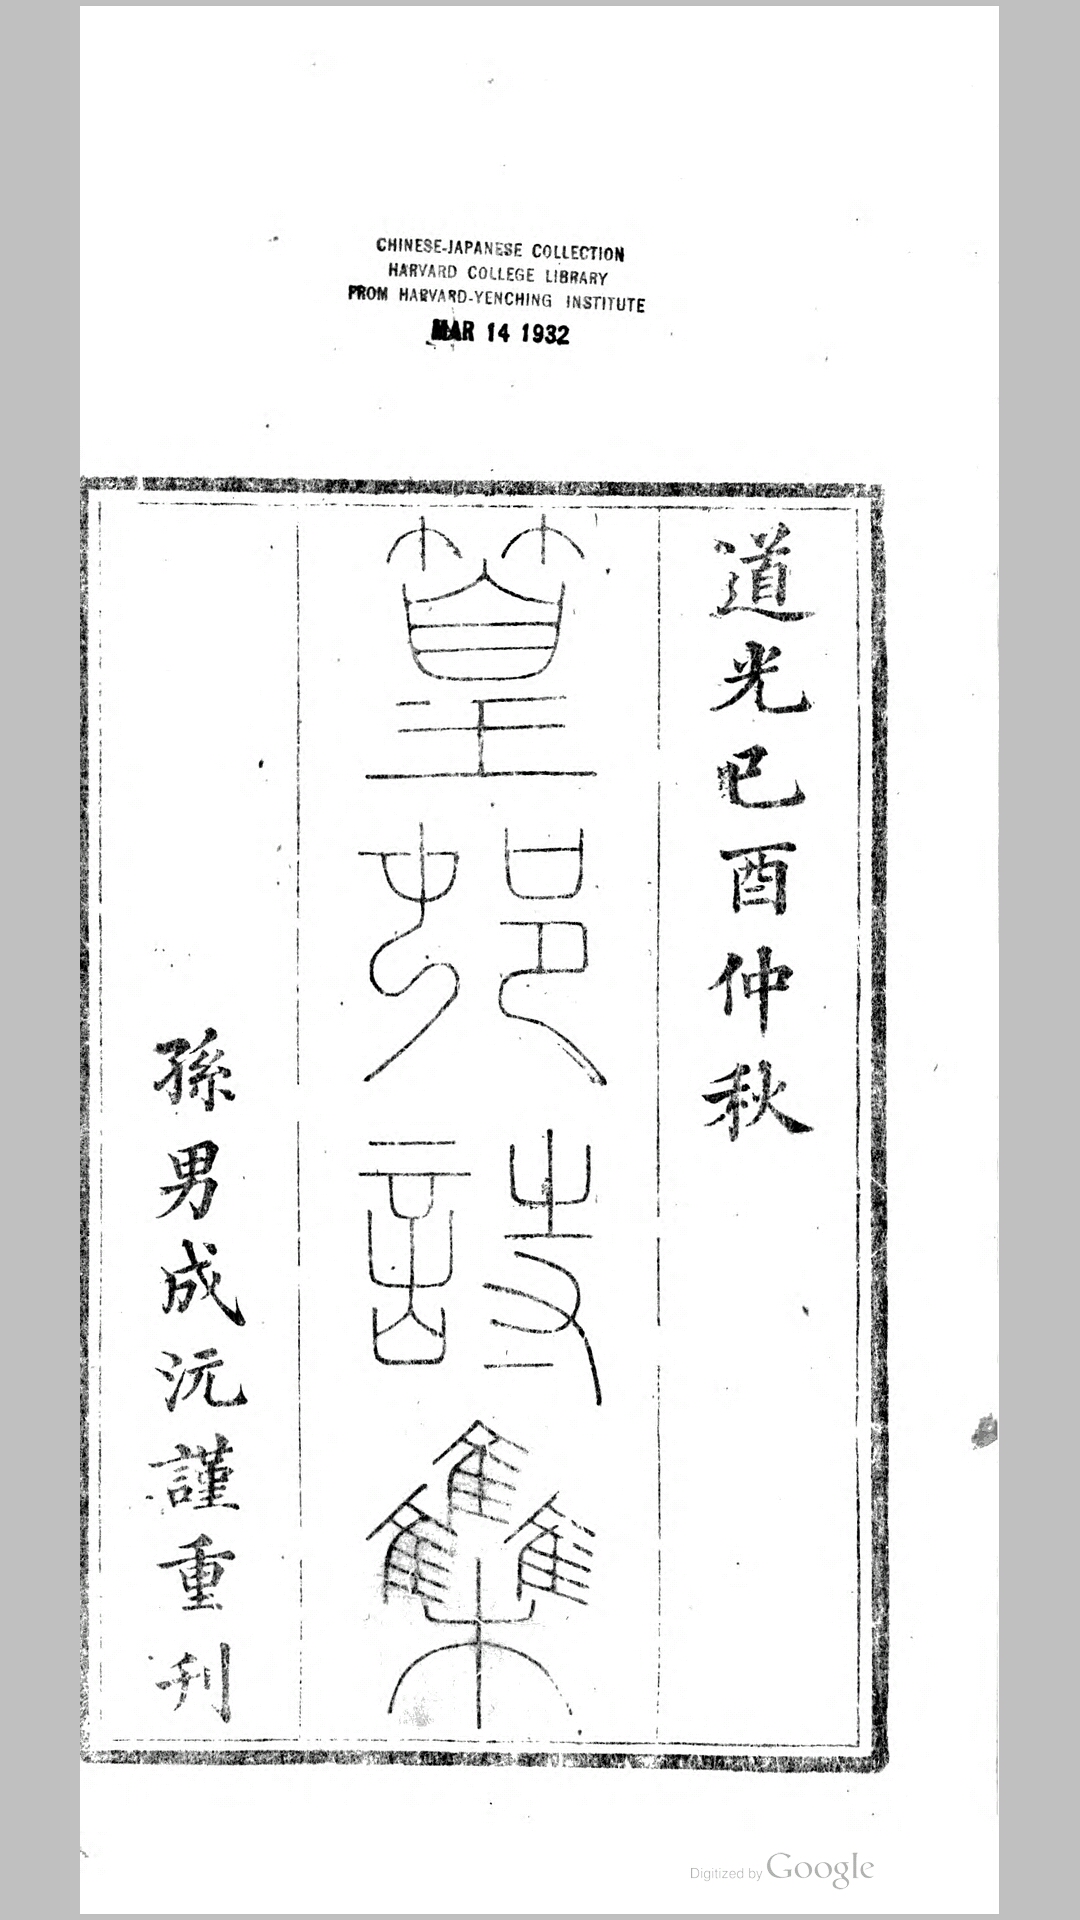 CHINESE-JAPANESE COLLECTION
HARVARD COLLEGE LIBRARY
FROM HARVARD-YENCHING INSTITUTE
MAR 14 1932
道光己酉仲秋
篁邨詩集
孫男成沅謹重刋
Digitized by Google